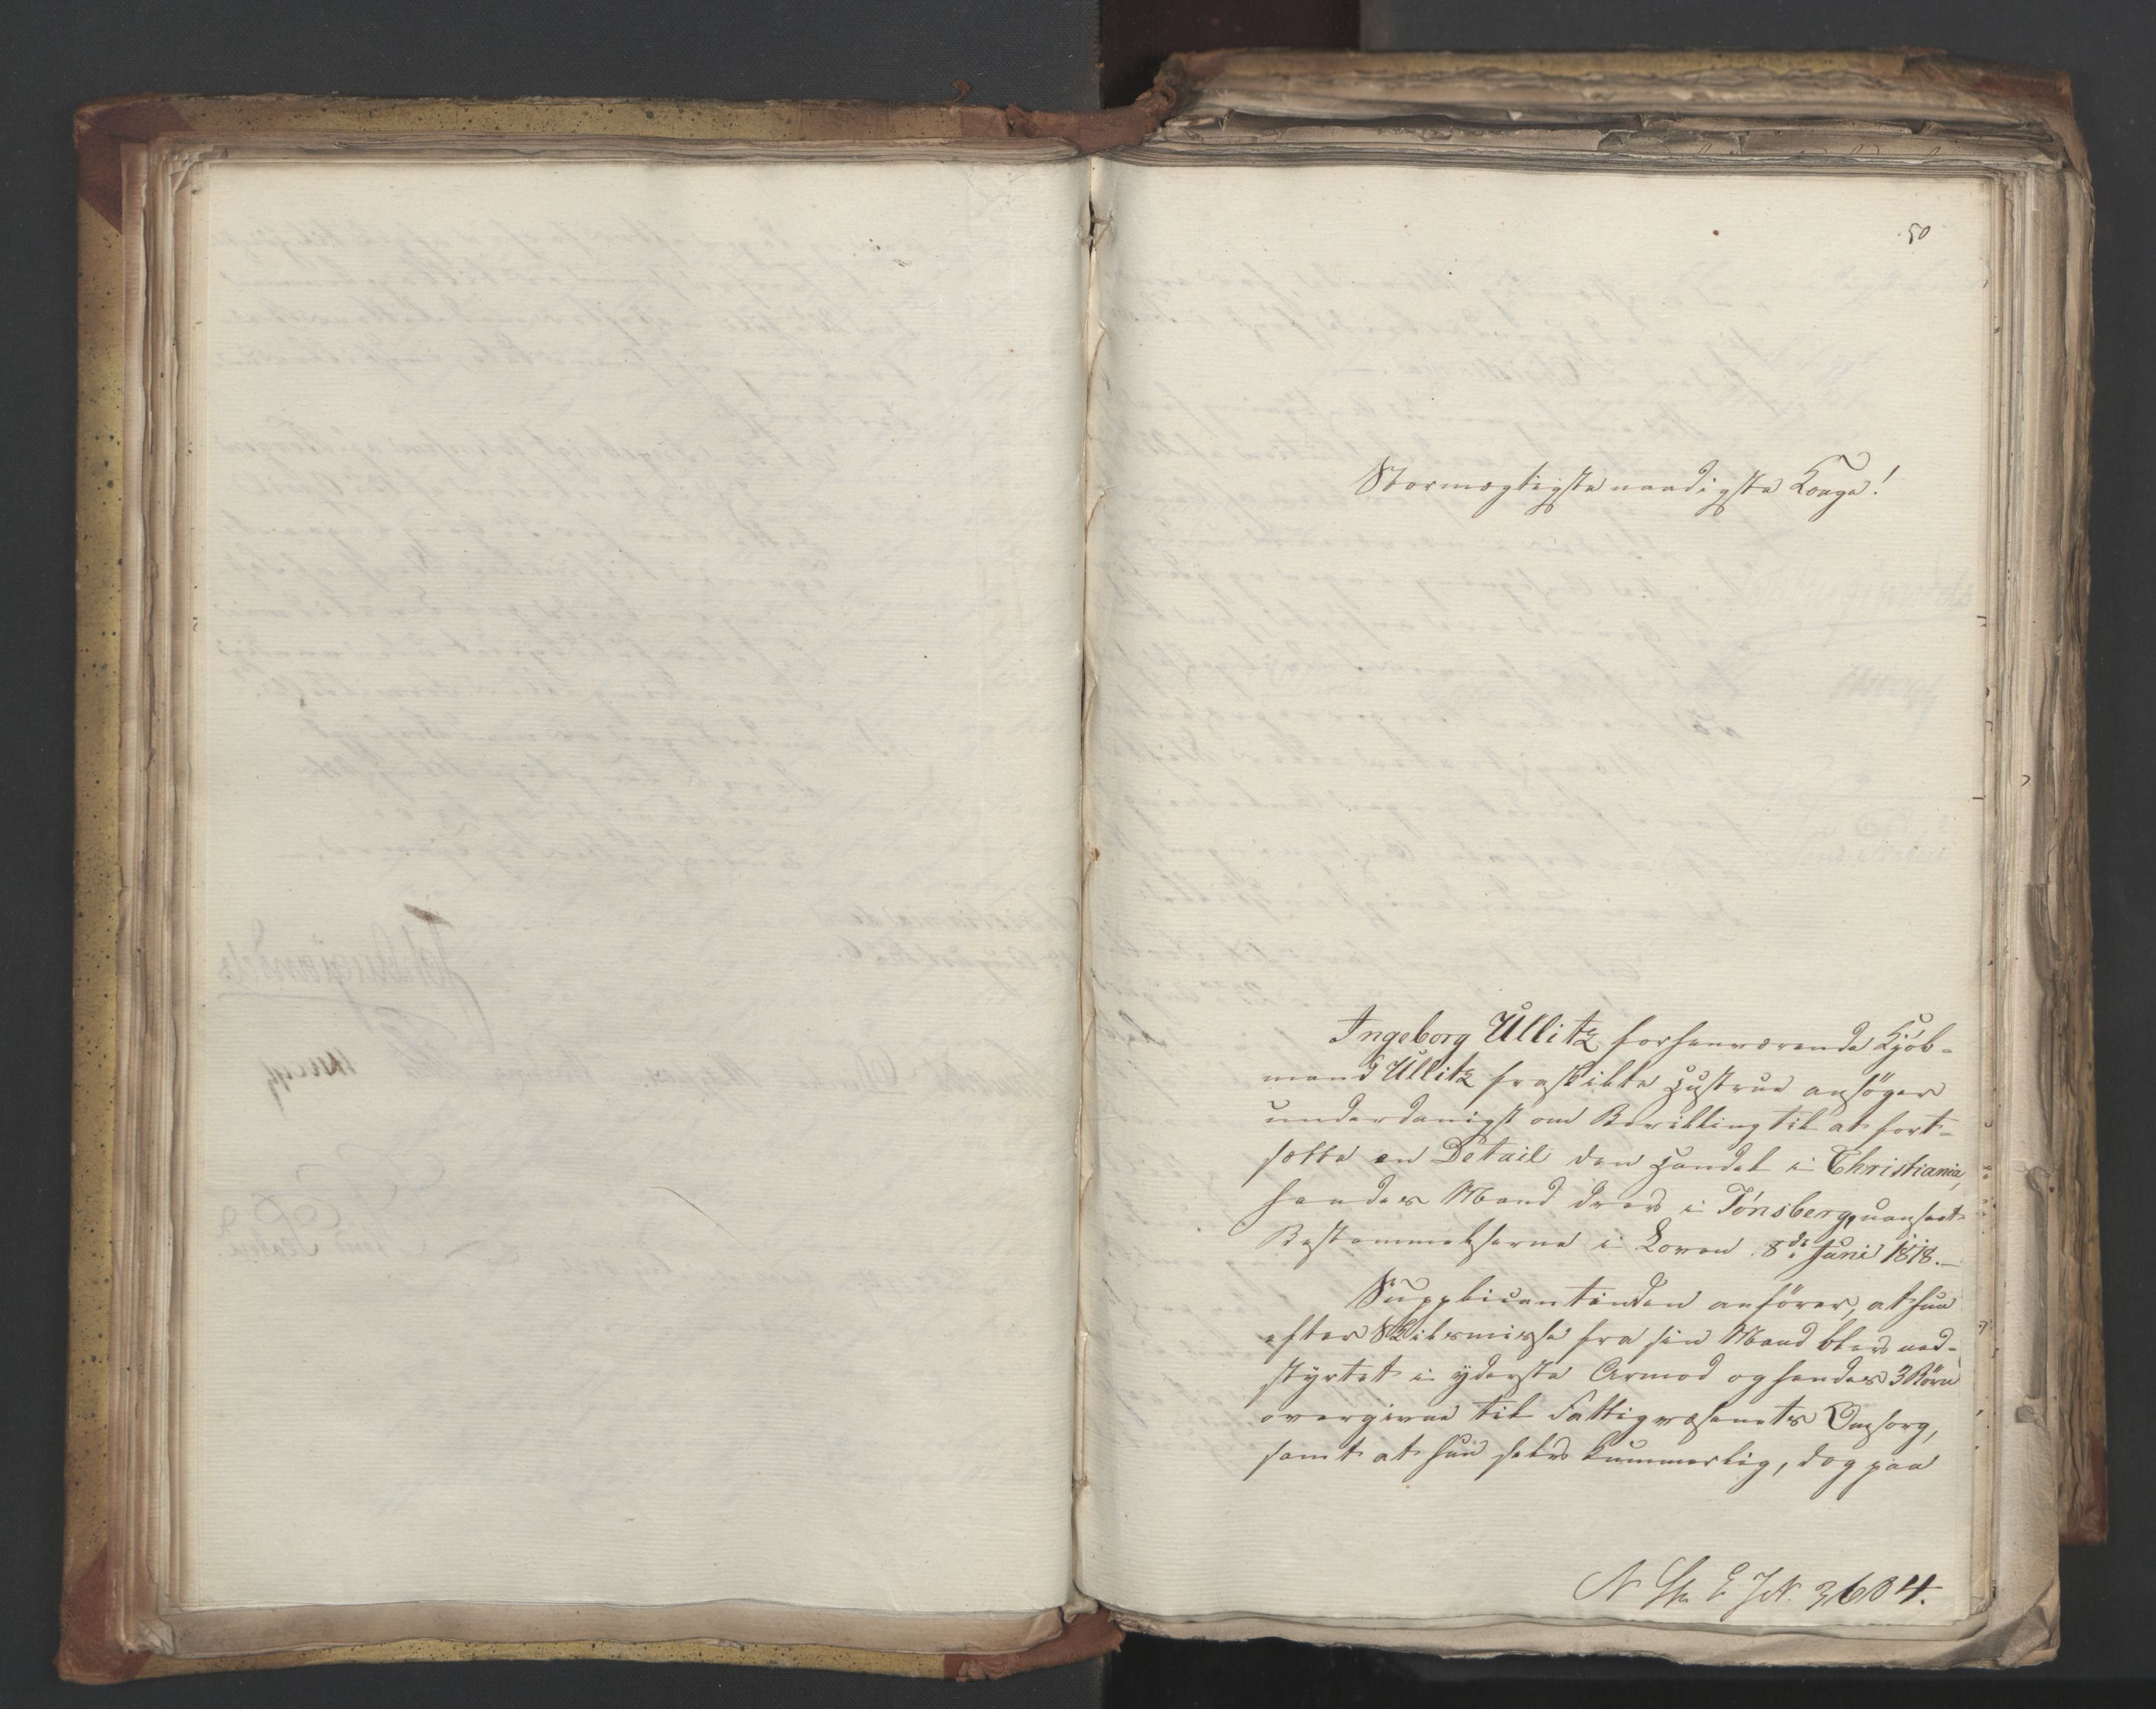 50
Stormægtigste naadigste Konge!
Ingeborg Ullitz forhenværende Kjöb-
mand Ullitz fraskilte Hustrue ansöger
underdanigst om Bevilling til at fort-
sætte en Detail den Handel i Christiania,
hendes Mand drev i Tönsberg, uanseet
Bestemmelserne i Loven 8de Juni 1818.-
Supplicantinden anförer, at hun
efter Skilsmisse fra sin Mand blev ned-
styrtet i yderste Armod og hendes 3 Börn
overgivne til Fattigvæsenets Omsorg,
samt at hun selv kummerlig, dog paa
3604.